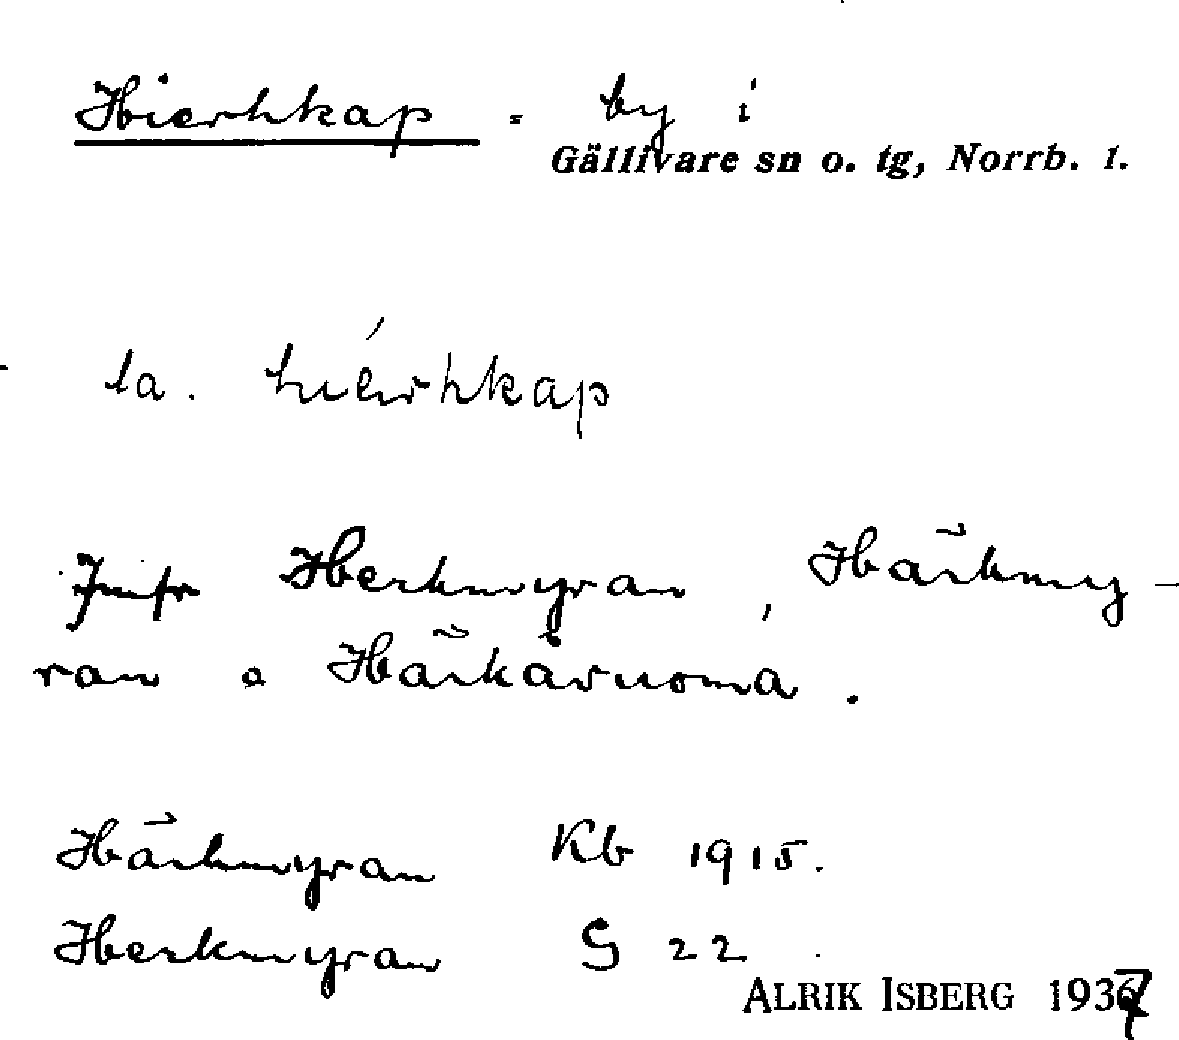 Hierhkap - by i
Gällivare sn o. tg, Norrb. l.
la. hiérhkap
Jmfr Herkmyran, Härkmy-
ran o Härkävuoma.
Härkmyran Kb 1915.
Herkmyran G 22.
ALRIK ISBERG 1937